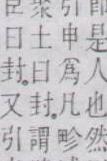 是人也然
引申爲凡畛
聚土曰封。謂
曰封。又引